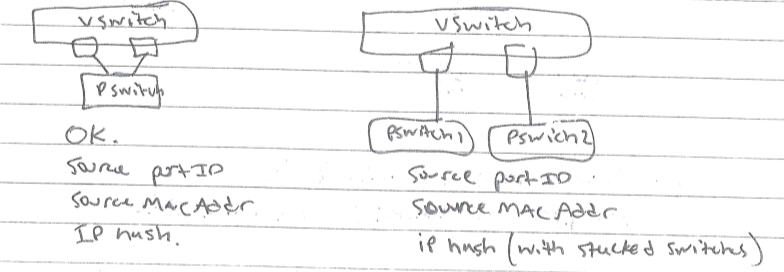 vswitch
Pswitch
OK.
Source port ID
Source MAC Addr
IP hash.
vswitch
Pswitch1
Pswich2
Source port ID
Source MAC Addr
ip hash (with stacked switches)